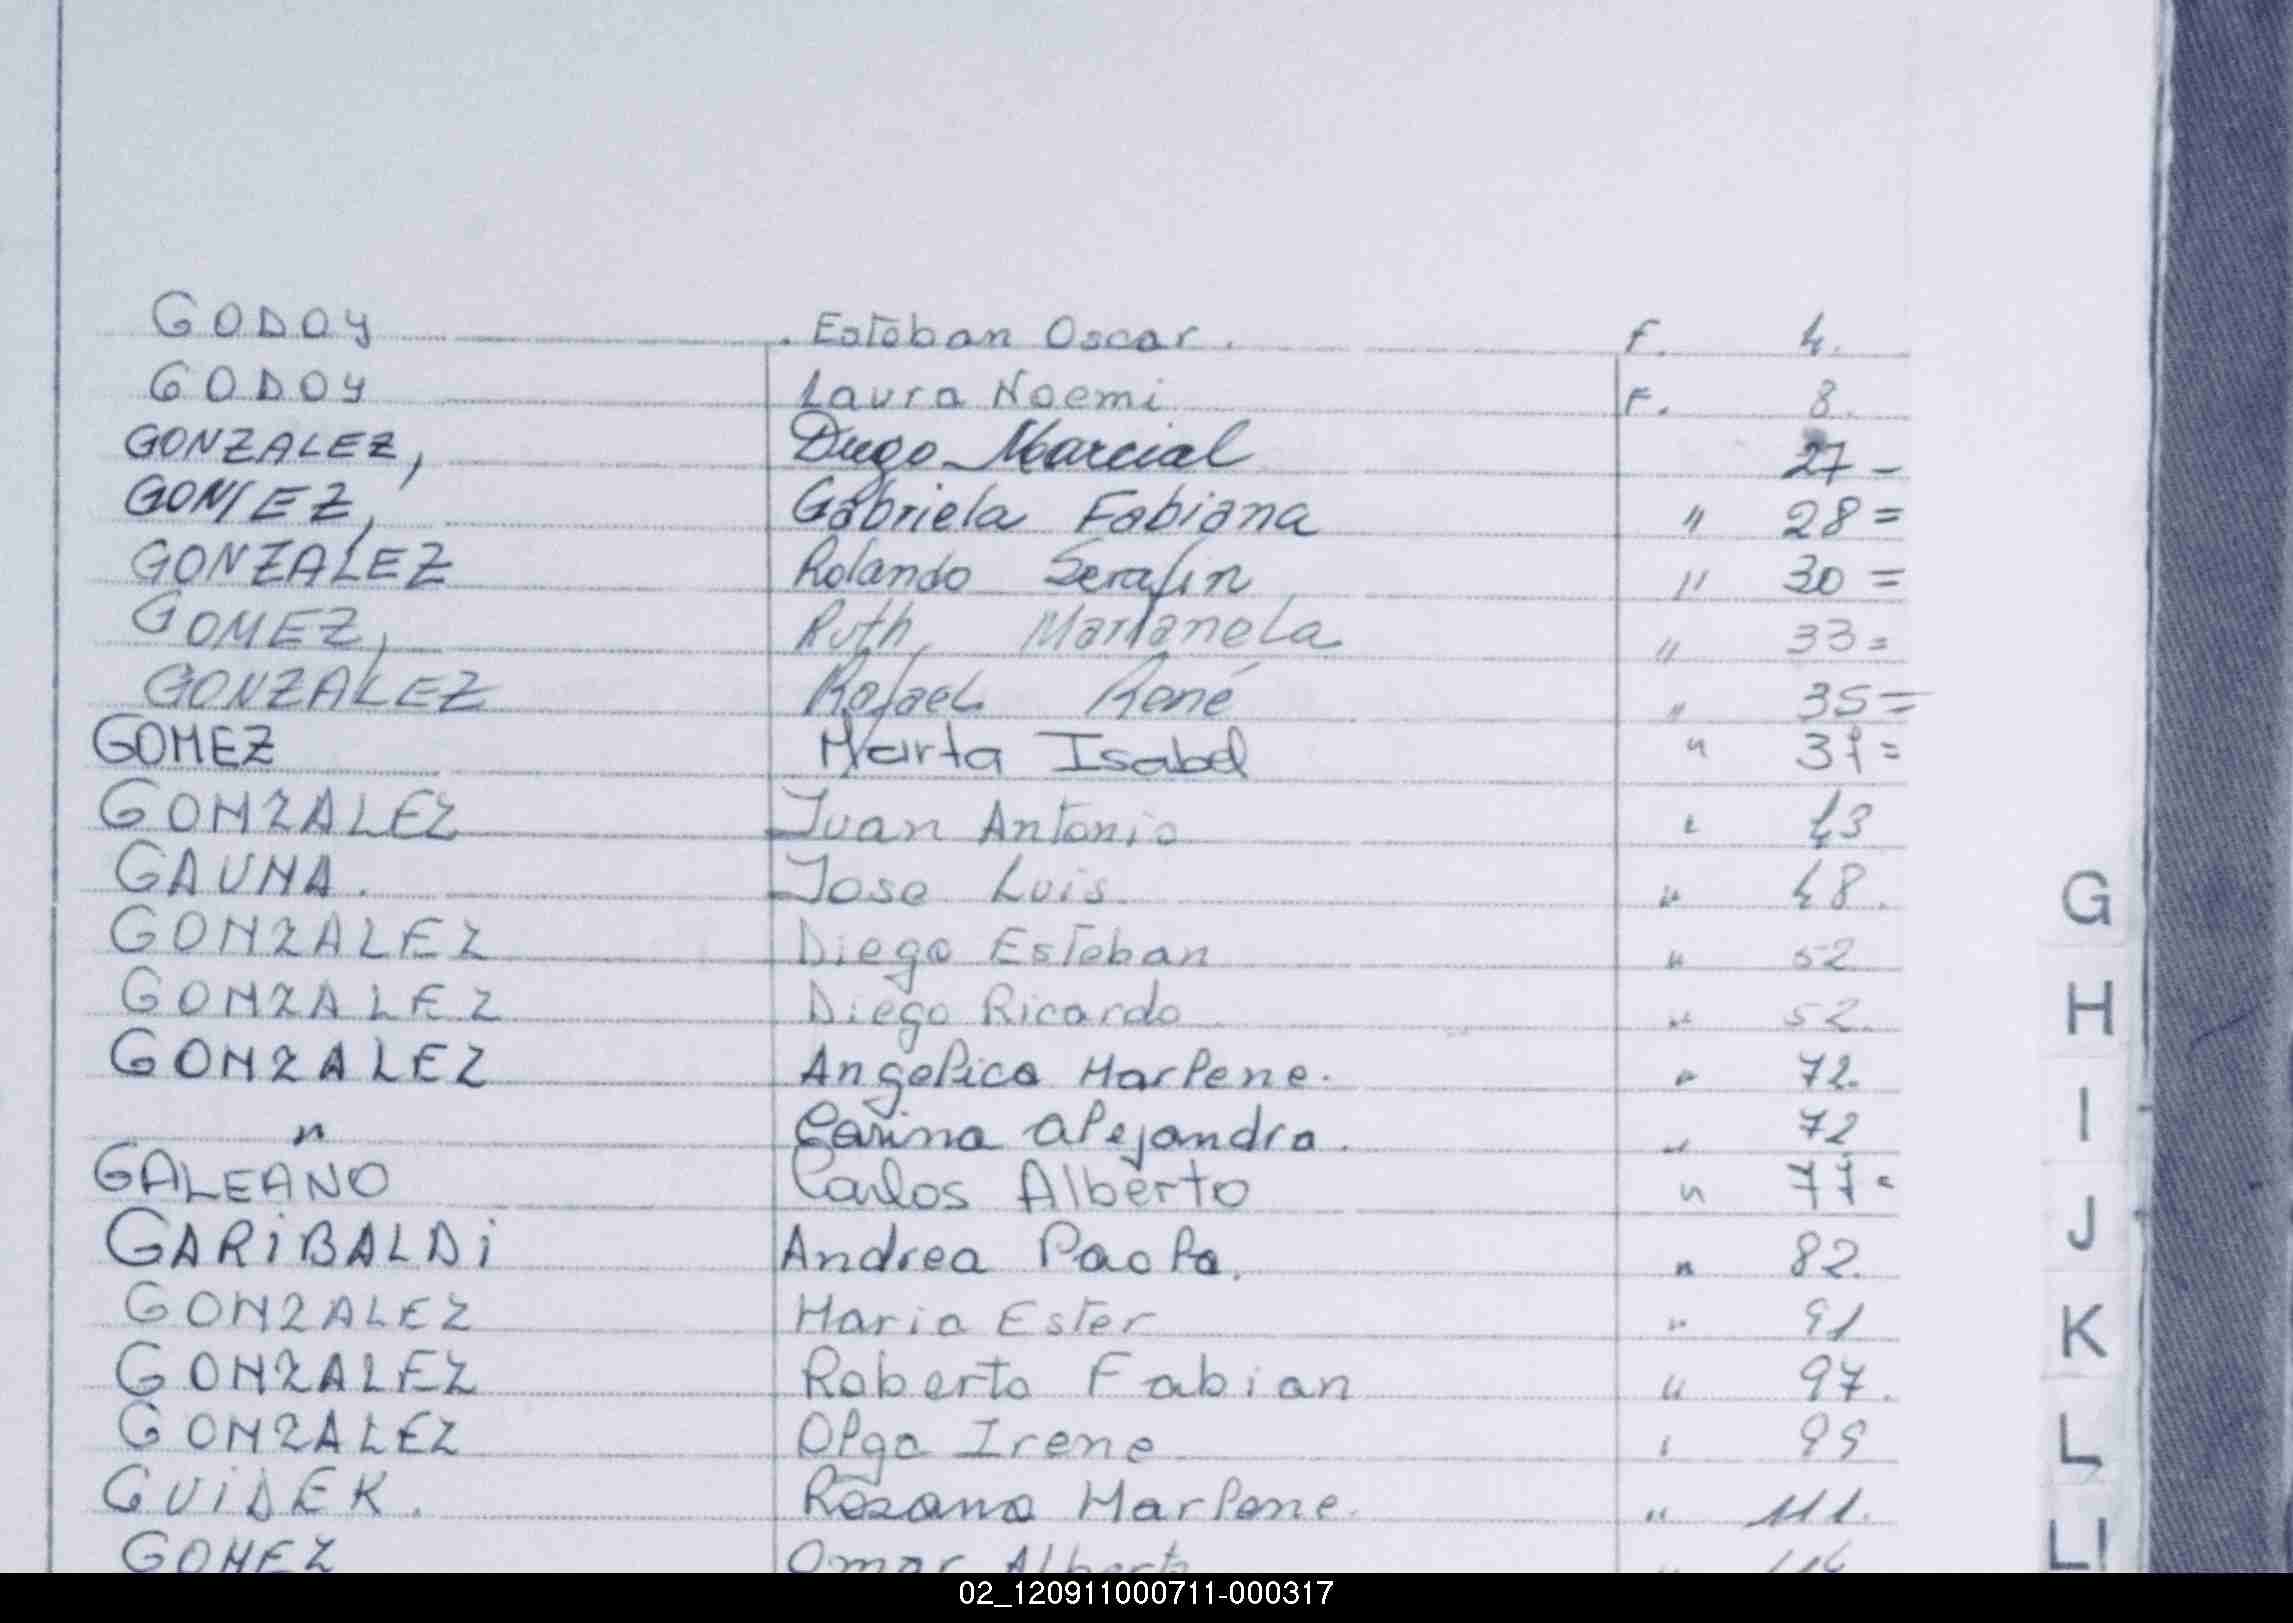 GODOY Esteban Oscar. F. 4.
GODOY Laura Noemi F. 8.
GONZALEZ, Diego Marcial 27 -
GOMEZ, Gabriela Fabiana " 28 =
GONZALEZ Rolando Serafin " 30 =
GOMEZ, Ruth Marianela " 33 =
GONZALEZ Rafael René " 35 =
GOMEZ Marta Isabel " 37 =
GONZALEZ Juan Antonio " 43
GAUNA. Jose Luis " 48.
GONZALEZ Diego Esteban " 52
GONZALEZ Diego Ricardo " 52.
GONZALEZ Angelica Marlene. " 72.
" Carina Alejandra. " 72
GALEANO Carlos Alberto " 77 =
GARiBALDi Andrea Paola. " 82.
GONZALEZ Maria Ester " 91
GONZALEZ Roberto Fabian " 97.
GONZALEZ Olga Irene " 99
GUiDEK. Rosana Marlene. " 111.
GOMEZ Omar Alberto "
G
H
I
J
K
L
Ll
02_120911000711-000317